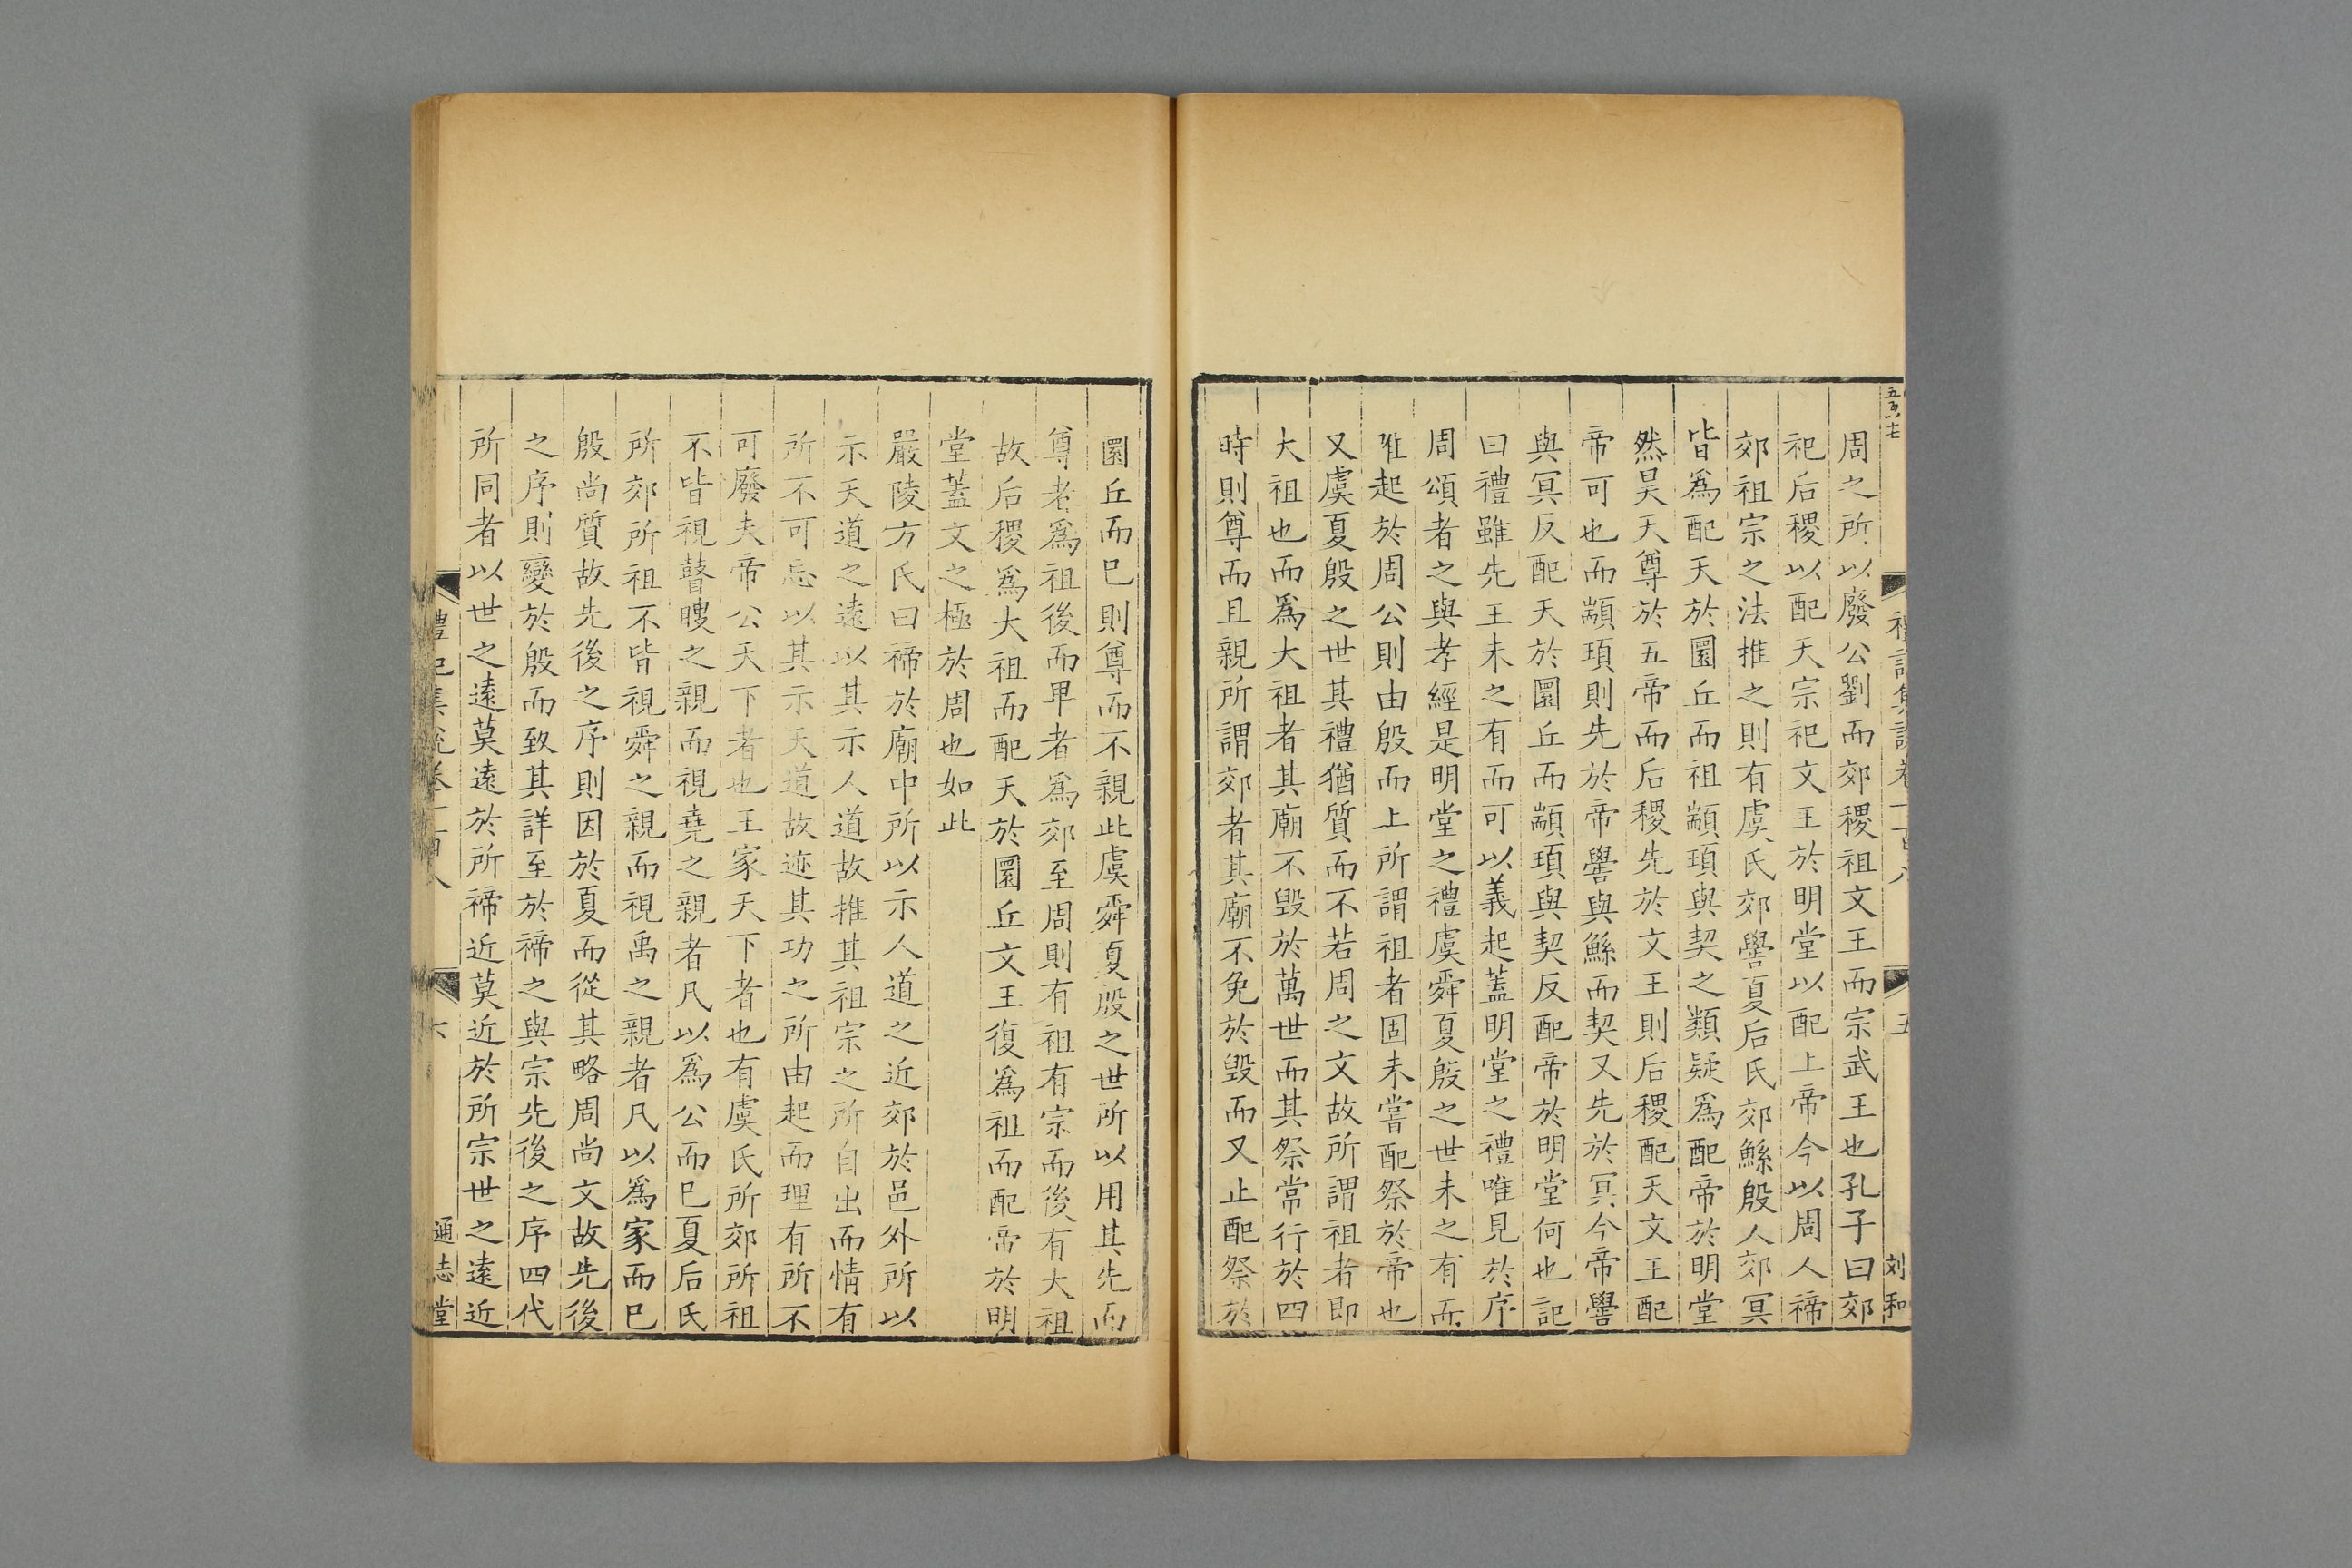 五百八七
禮記集說卷一百八
五
刘和
周之所以廢公劉而郊稷祖文王而宗武王也孔子曰郊
祀后稷以配天宗祀文王於明堂以配上帝今以周人禘
郊祖宗之法推之則有虞氏郊嚳夏后氏郊鯀殷人郊冥
皆爲配天於圜丘而祖顓頊與契之類疑爲配帝於明堂
然昊天尊於五帝而后稷先於文王則后稷配天文王配
帝可也而顓頊則先於帝嚳與鯀而契又先於冥今帝嚳
與冥反配天於圜丘而顓頊與契反配帝於明堂何也記
曰禮雖先王未之有而可以義起蓋明堂之禮唯見於序
周頌者之與孝經是明堂之禮虞舜夏殷之世未之有而
唯起於周公則由殷而上所謂祖者固未嘗配祭於帝也
又虞夏殷之世其禮猶質而不若周之文故所謂祖者即
大祖也而爲大祖者其廟不毀於萬世而其祭常行於四
時則尊而且親所謂郊者其廟不免於毀而又止配祭於
圜丘而已則尊而不親此虞舜夏殷之世所以用其先而
尊者爲祖後而卑者爲郊至周則有祖有宗而後有大祖
故后稷爲大祖而配天於圜丘文王復爲祖而配帝於明
堂蓋文之極於周也如此
嚴陵方氏曰禘於廟中所以示人道之近郊於邑外所以
示天道之遠以其示人道故推其祖宗之所自出而情有
所不可忘以其示天道故迹其功之所由起而理有所不
可廢夫帝公天下者也王家天下者也有虞氏所郊所祖
不皆視瞽瞍之親而視堯之親者凡以爲公而已夏后氏
所郊所祖不皆視舜之親而視禹之親者凡以爲家而已
殷尚質故先後之序則因於夏而從其略周尚文故先後
之序則變於殷而致其詳至於禘之與宗先後之序四代
所同者以世之遠莫遠於所禘近莫近於所宗世之遠近
禮記集說卷一百八
六
通志堂